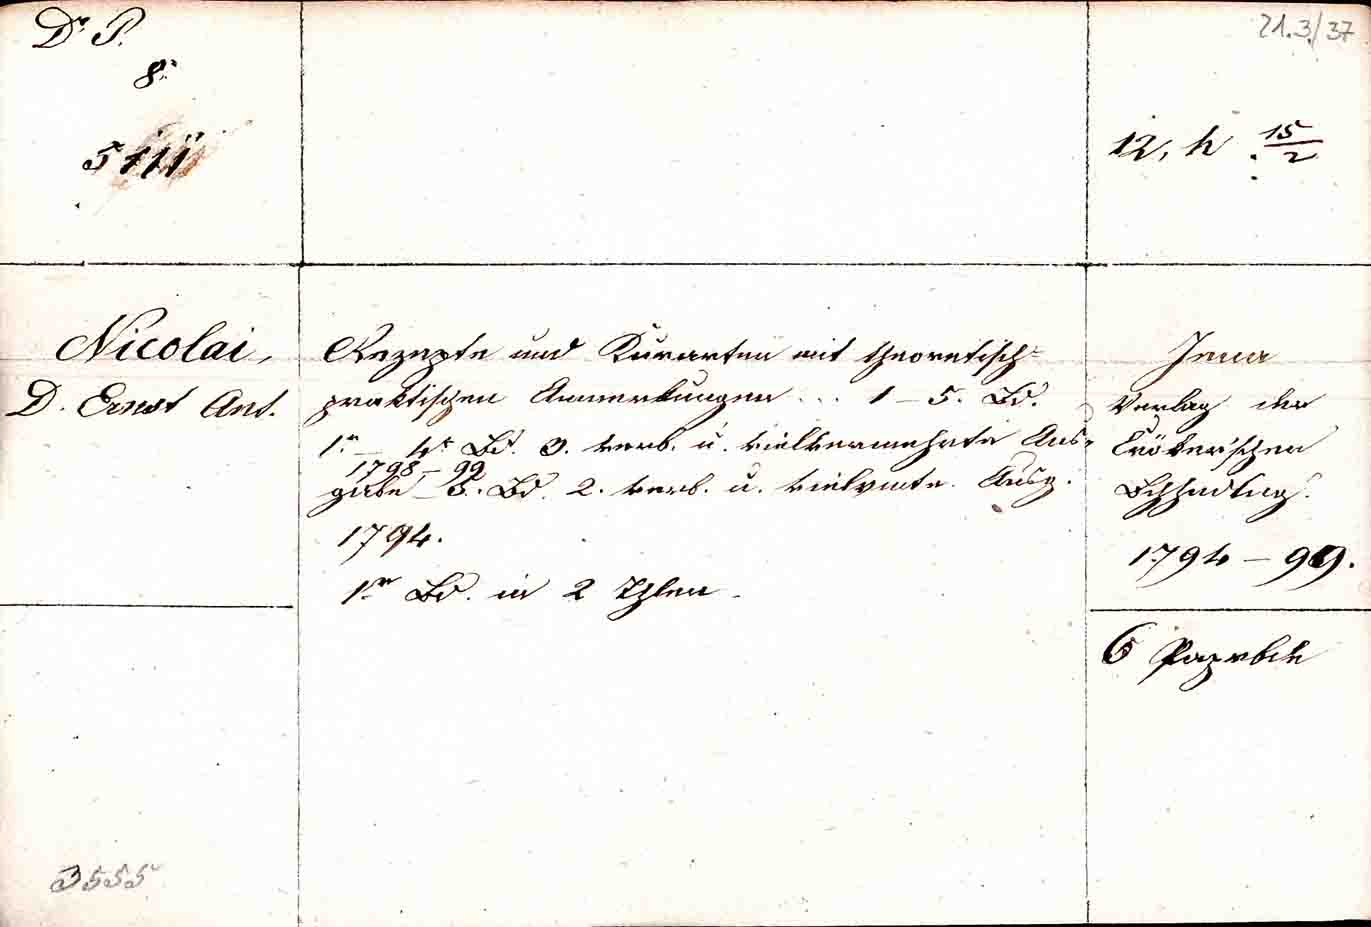 Dr. P.
8.
5
21.3./37
12, h 15/2
Nicolai,
D. Ernst Ant.
Rezepte und Kurarten mit theoretisch-
praktischen Anmerkungen ... 1 – 5. Bd.
1r – 4r Bd. 3. verb. u. vielvermehrte Aus-
1798 – 99
gabe – 5. Bd. 2. verb. u. vielvmte. Ausg.
1794.
1r Bd. in 2 Thlen.
Jena
Verlag der
Cröker'schen
Bchhndlug.
1794 – 99.
6 Papbde
3555